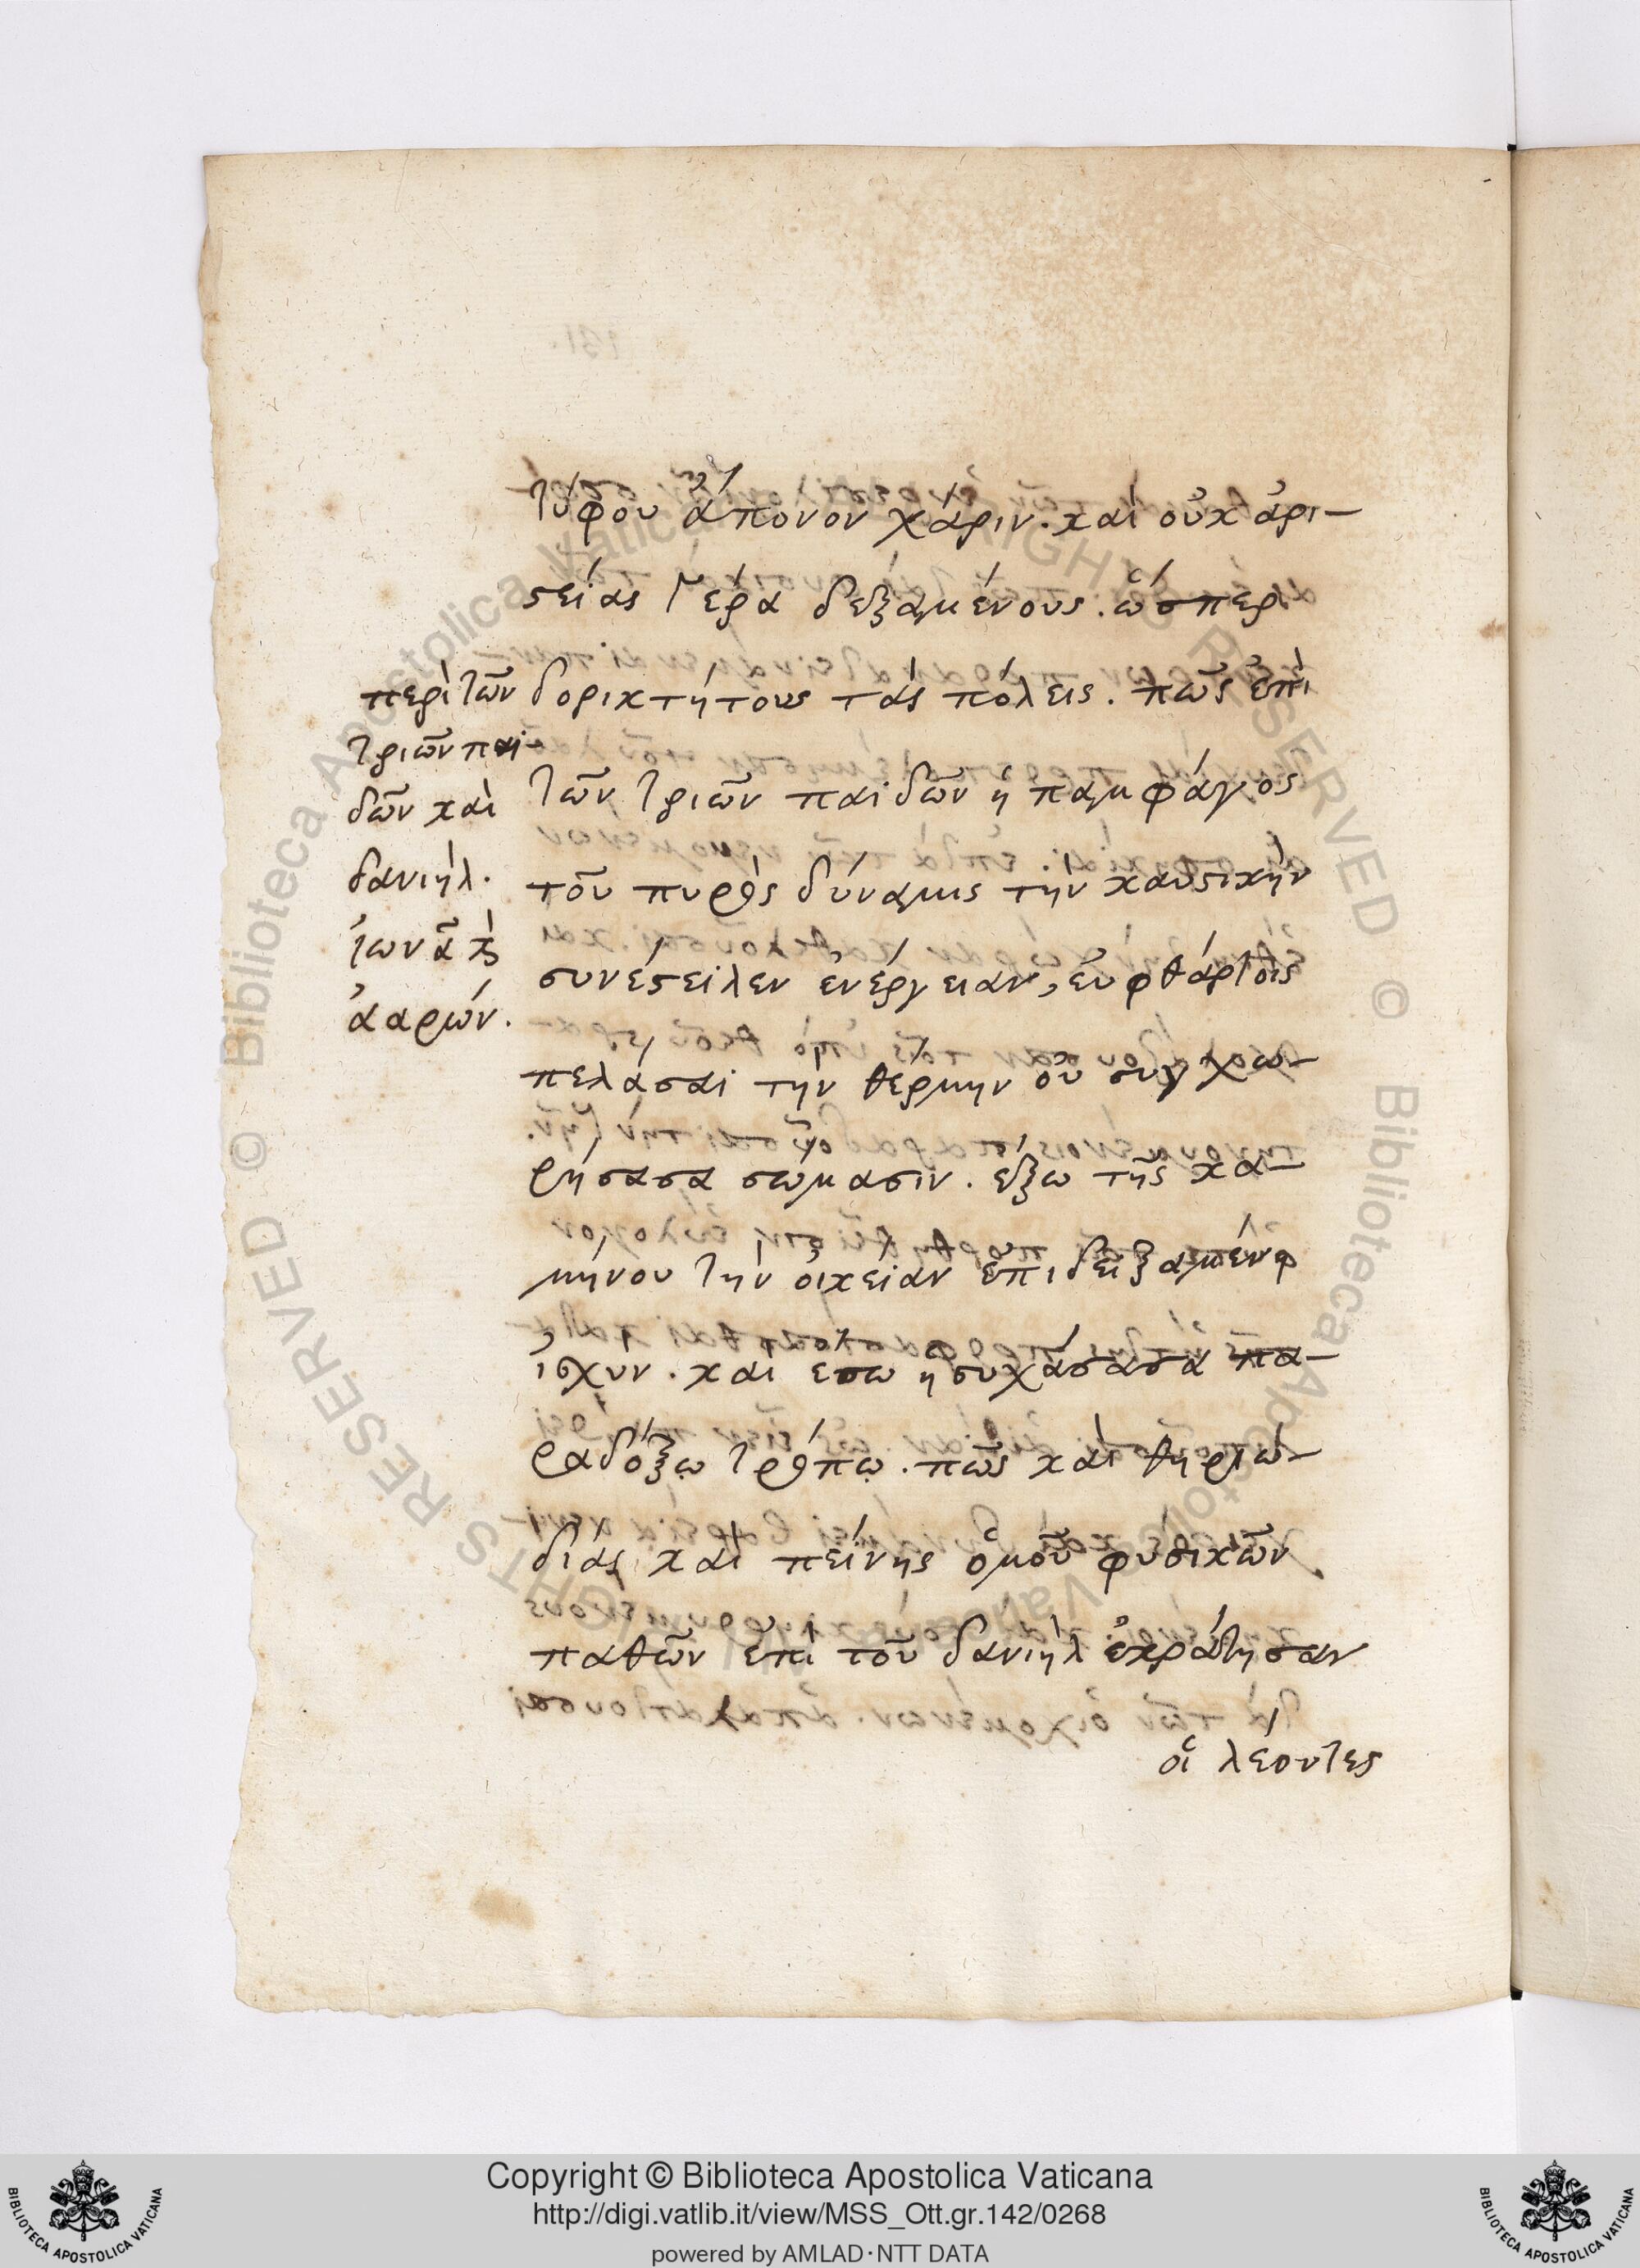 τύφου ἄπονον χάριν. καὶ οὐκ ἀρι-
στείας γέρα δεξαμένους. ὥσπερ
δορικτήτους τὰς πόλεις. πῶς ἐπὶ
τῶν τριῶν παίδων ἡ παμφάγος
τοῦ πυρὸς δύναμις τὴν καυστικὴν
συνέστειλεν ἐνέργειαν, εὐφθάρτοις
πελάσαι τὴν θέρμην οὐ συγχω-
ρήσασα σώμασιν. ἔξω τῆς κα-
μήνου τὴν οἰκείαν ἐπιδειξαμένη
ἰσχύν. καὶ ἔσω ἡσυχάσασα πα-
ραδόξῳ τρόπῳ. πῶς καὶ θηριω-
δίας καὶ πείνης ὁμοῦ φυσικῶν
παθῶν ἐπὶ τοῦ δανιὴλ ἐκράτησαν
οἱ λέοντες
περὶ τῶν
τριῶν παί-
δων καὶ
δανιήλ.
ἰωνᾶ καὶ
ἀαρών.
Copyright © Biblioteca Apostolica Vaticana
http://digi.vatlib.it/view/MSS_Ott.gr.142/0268
powered by AMLAD·NTT DATA
BIBLIOTECA APOSTOLICA VATICANA
BIBLIOTECA APOSTOLICA VATICANA